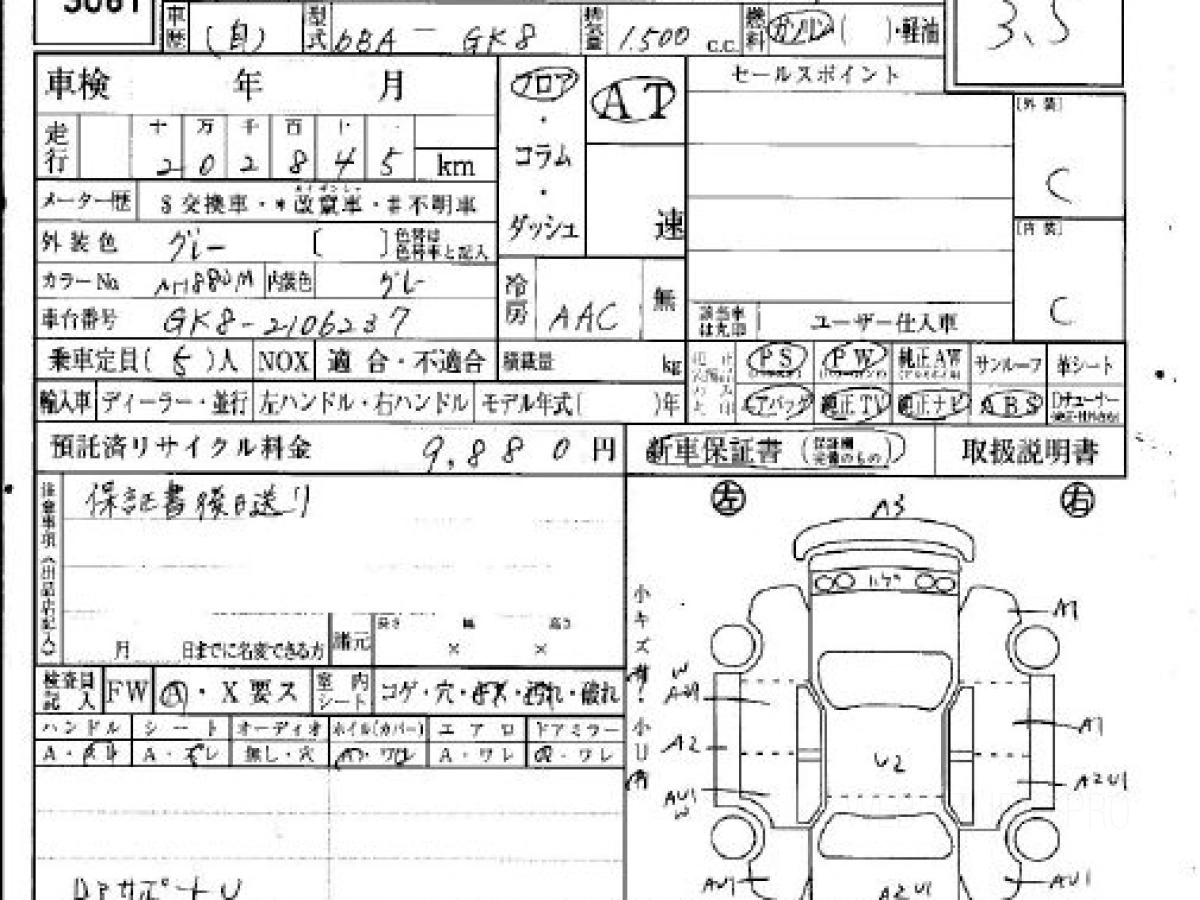 3081
車歴 (自) 型式 6BA - GK8 排気量 1.500 C.C. 燃料 ガソリン( )・軽油
3.5
車検 年 月
フロア・コラム・ダッシュ
AT
速
セールスポイント
[外装]
C
[内装]
C
走行 十 万 千 百 十 一
2 0 2 8 4 5 km
メーター歴 $交換車・*改竄車・#不明車
外装色 グレー [ ] 色替は色替車と記入
カラーNo. NH880M 内装色 グレー
冷房 AAC 無
該当車は丸印 ユーザー仕入車
車台番号 GK8-2106237
乗車定員( 5 )人 NOX 適合・不適合 積載量 kg
PS PW 純正AW サンルーフ 革シート
輸入車 ディーラー・並行 左ハンドル・右ハンドル モデル年式( )年
エアバッグ 純正TV 純正ナビ ABS
預託済リサイクル料金 9,880円
新車保証書(保証欄完備のもの) 取扱説明書
注意事項(出品店記入)
保証書後日送り
月 日までに名変できる方 諸元 長さ × 幅 × 高さ
検査員記入 FW A・X要ス 室内シート コゲ・穴・キズ・汚れ・破れ
ハンドル シート オーディオ ホイル(カバー) エアロ ドアミラー
A・スレ A・スレ 無し・穴 A・ワレ A・ワレ A・ワレ
左 右
小キズ有
小U有
A3
A1
A2
A1
U2
A2U1
AU1
W
AU1
A2U1
AU1